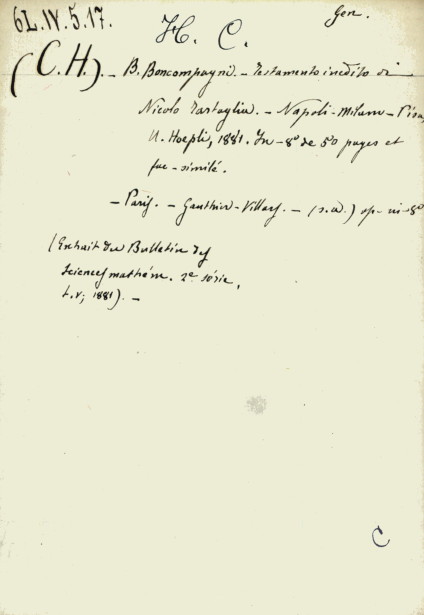 6L.IV.5.17.
Gen.
H. C.
(C.H.). — B. Boncompagni. — Testamento inedito di
Nicolo Tartaglia. — Napoli - Milano - Pisa,
U. Hoepli, 1881. In-8º de 50 pages et
fac-similé.
— Paris. — Gauthier-Villars. — (s.d.) op. in-8º
(Extrait du Bulletin des
Sciences mathém. 2e série,
t. V; 1881). —
C